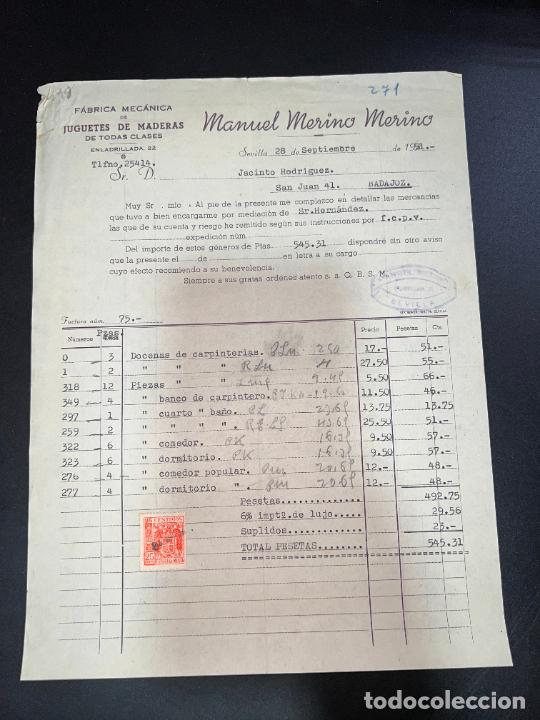 271
FÁBRICA MECÁNICA
DE
JUGUETES DE MADERAS
DE TODAS CLASES
ENLADRILLADA, 22
Tlfno. 25414.
Manuel Merino Merino
Sevilla 28 de Septiembre de 1951.-
Sr. D. Jacinto Rodriguez.
San Juan 41. BADAJOZ.
Muy Sr. mio: Al pie de la presente me complazco en detallar las mercancias
que tuvo a bien encargarme por mediación de Sr.Hernández.
las que de su cuenta y riesgo he remitido según sus instrucciones por f.c.p.v.
expedición núm.
Del importe de estos géneros de Ptas. 545.31 dispondré sin otro aviso
que la presente el de en letra a su cargo
cuyo efecto recomiendo a su benevolencia.
Siempre a sus gratas ordenes atento s. s. Q. B. S. M.
SEVILLA
Factura núm. 75.-
Números Pzas Precio Pesetas Cts.
0 3 Docenas de carpinterias. 17.- 51.-
1 2 " " " 27.50 55.-
318 12 Piezas " " 5.50 66.-
349 4 " banco de carpintero. 11.50 46.-
297 1 " cuarto " baño. 13.75 13.75
259 2 " " " ". 25.50 51.-
322 6 " comedor. 9.50 57.-
323 6 " dormitorio. 9.50 57.-
276 4 " comedor popular. 12.- 48.-
277 4 " dormitorio ". 12.- 48.-
Pesetas.............. 492.75
6% imptº.de lujo.. 29.56
Suplidos............. 23.-
TOTAL PESETAS........ 545.31
todocoleccion